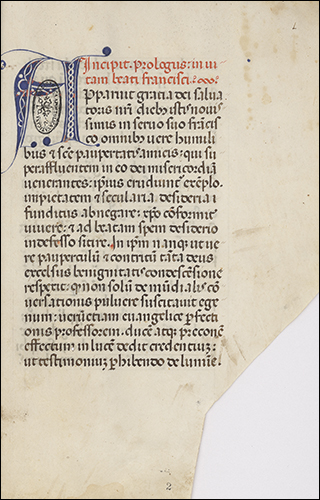 1
Incipit. prologus: in ui
tam beati francisci:
Apparuit gratia dei salua
toris nr̄i dieb; istis nouis
simis in seruo suo francis
co omnib; uere humili
bus ⁊ sc̄e paupertatis amicis: qui su
peraffluentem in eo dei misericordiā
uenerantes: ip̄ius erudiunt᷑ exēplo.
impietatem ⁊ secularia desideria
funditus abnegare: xp̄o cōformit᷑
uiuere: ⁊ ad beatam spem desiderio
indefesso sitire. In ip̄m nanq; ut ue
re paup̄culū ⁊ contritū tāta deus
excelsus benignitatis condescēsione
respexit: qd̓ non solū de mūdialis cō
uersationis puluere suscitauit ege
num: uerū etiam euangelice p̄fecti
onis professorem. ducē atq; p̄conē
effectum in lucē dedit credentiuꝫ:
ut testimoniuꝫ ꝑhibendo de lumīe:
2